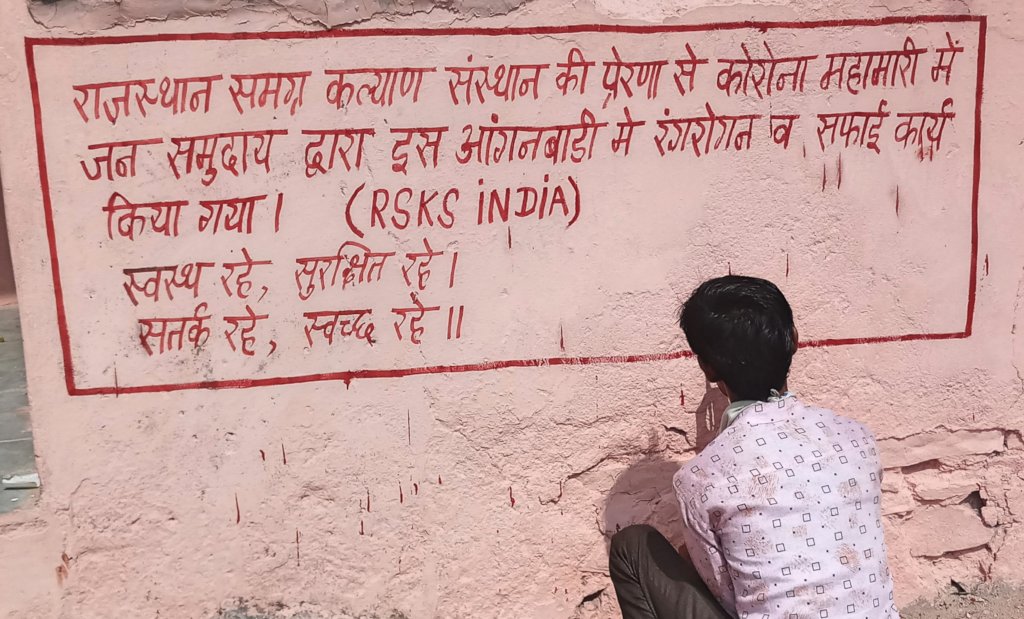 राजस्थान समग्र कल्याण संस्थान की प्रेरणा से कोरोना महामारी में
जन समुदाय द्वारा इस आंगनबाडी मे रंगरोगन व सफाई कार्य
किया गया। (RSKS iNDiA)
स्वस्थ रहे, सुरक्षित रहे।
सतर्क रहे, स्वच्छ रहे॥